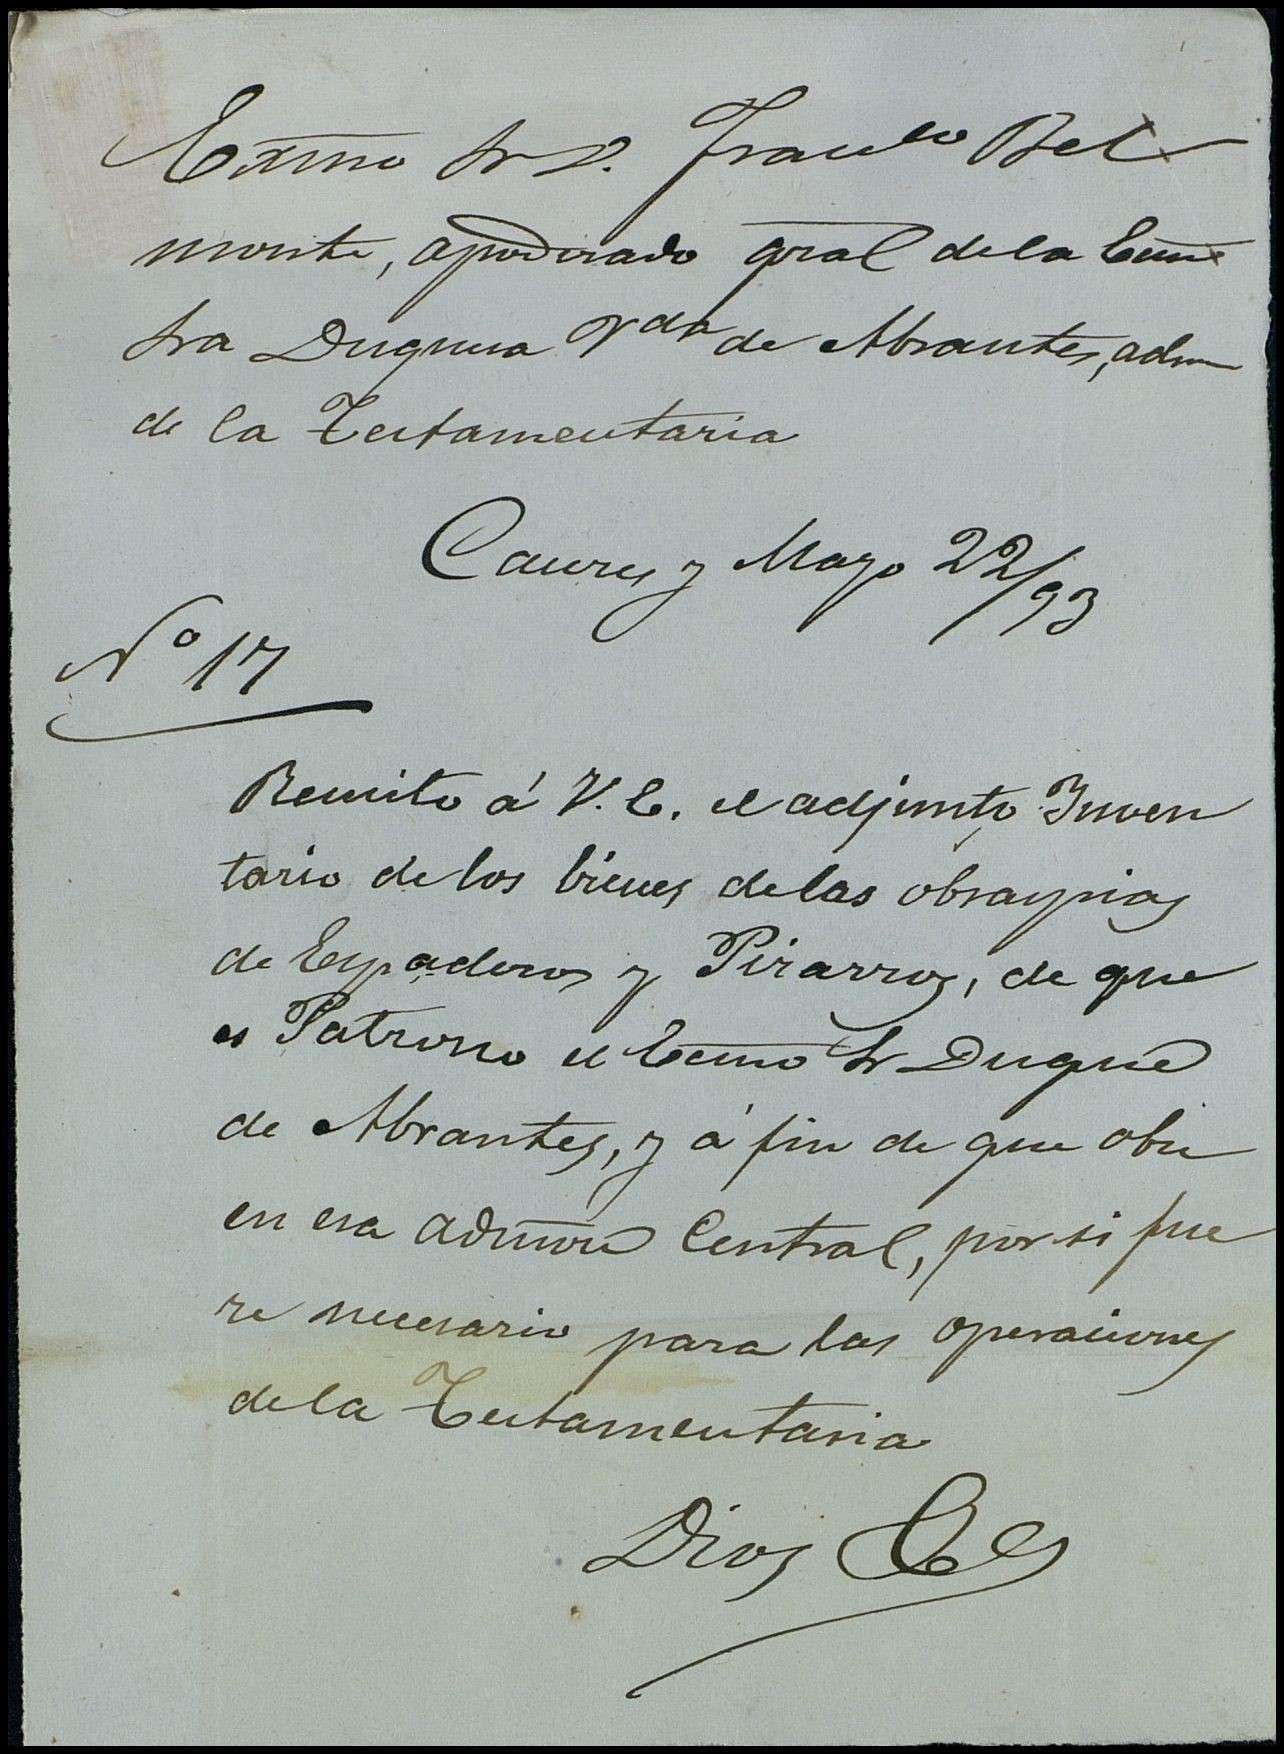 Exmo Sr D. Franco Bel
monte, apoderado gral de la Exma
Sra Duquesa Vda de Abrantes, admon
de la Testamentaria
Caceres y Mayo 22/93
No 17
Remito á V. E. el adjunto Inven
tario de los bienes de las obras pias
de Espaderos y Pizarros, de que
es Patrono el Exmo Sr Duque
de Abrantes, y á fin de que obre
en esa admon Central, por si fue
re necesario para las operaciones
de la Testamentaria
Dios